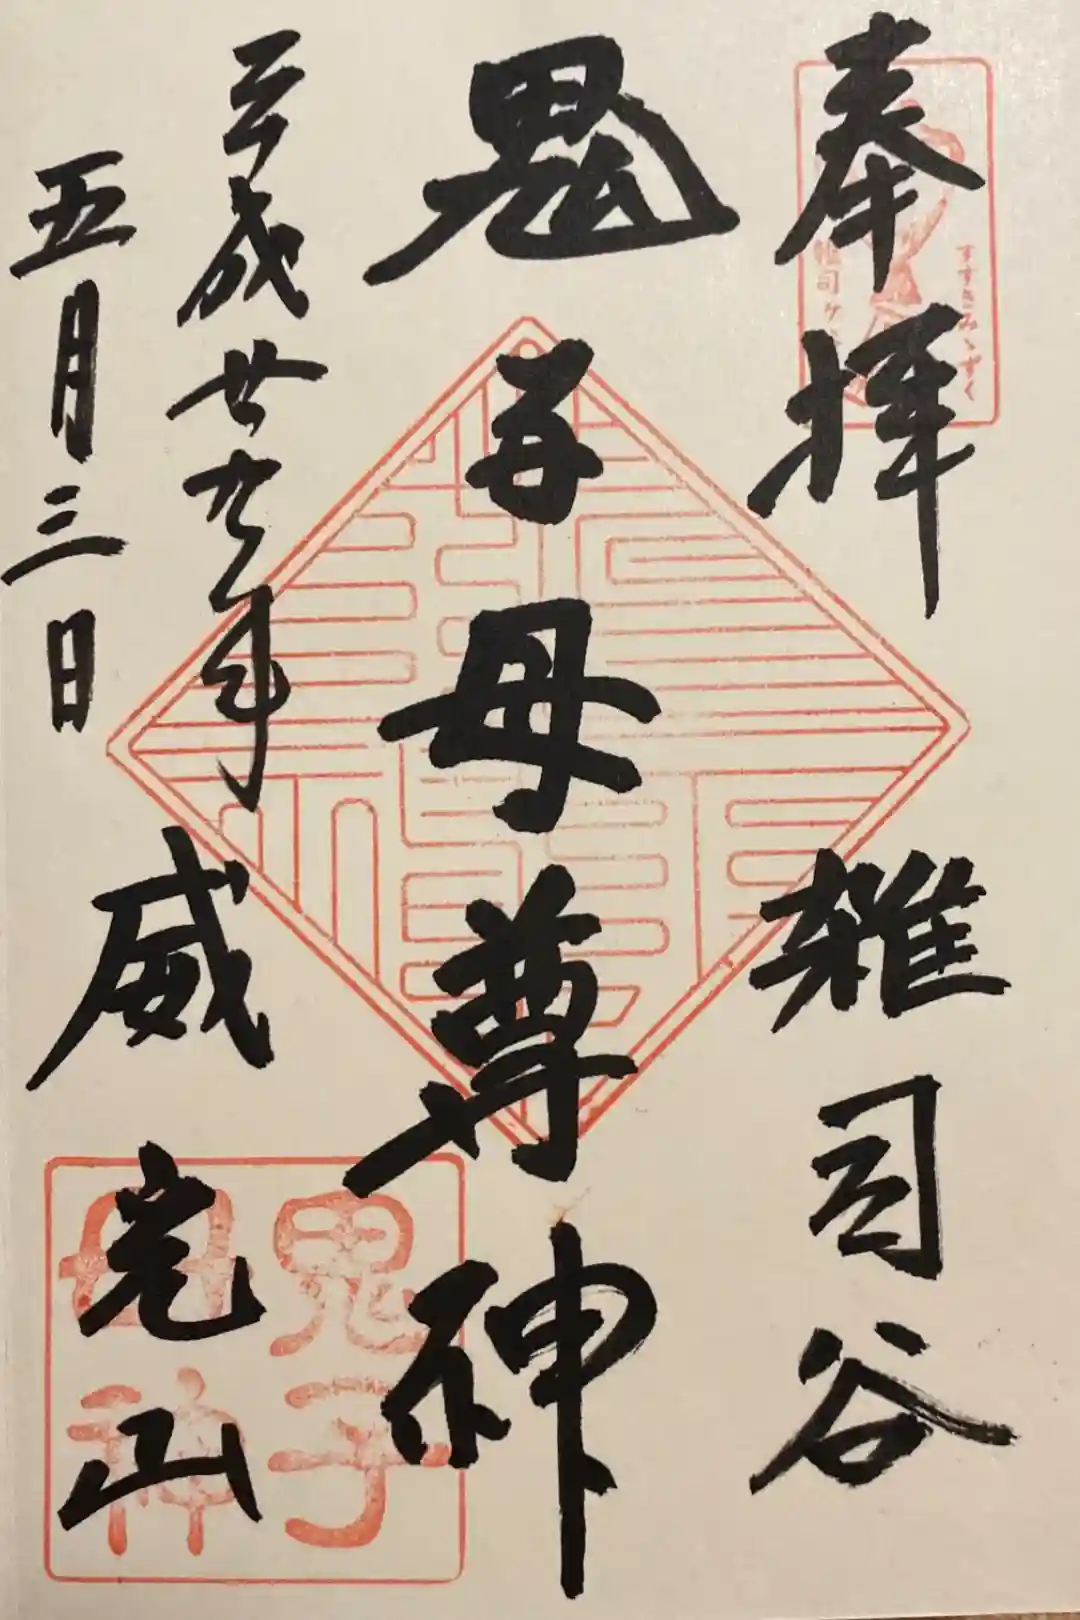 奉拝
雑司谷
鬼子母尊神
平成廿九年
五月三日
威光山
すすきみゝずく
雑司ケ
鬼子
母神